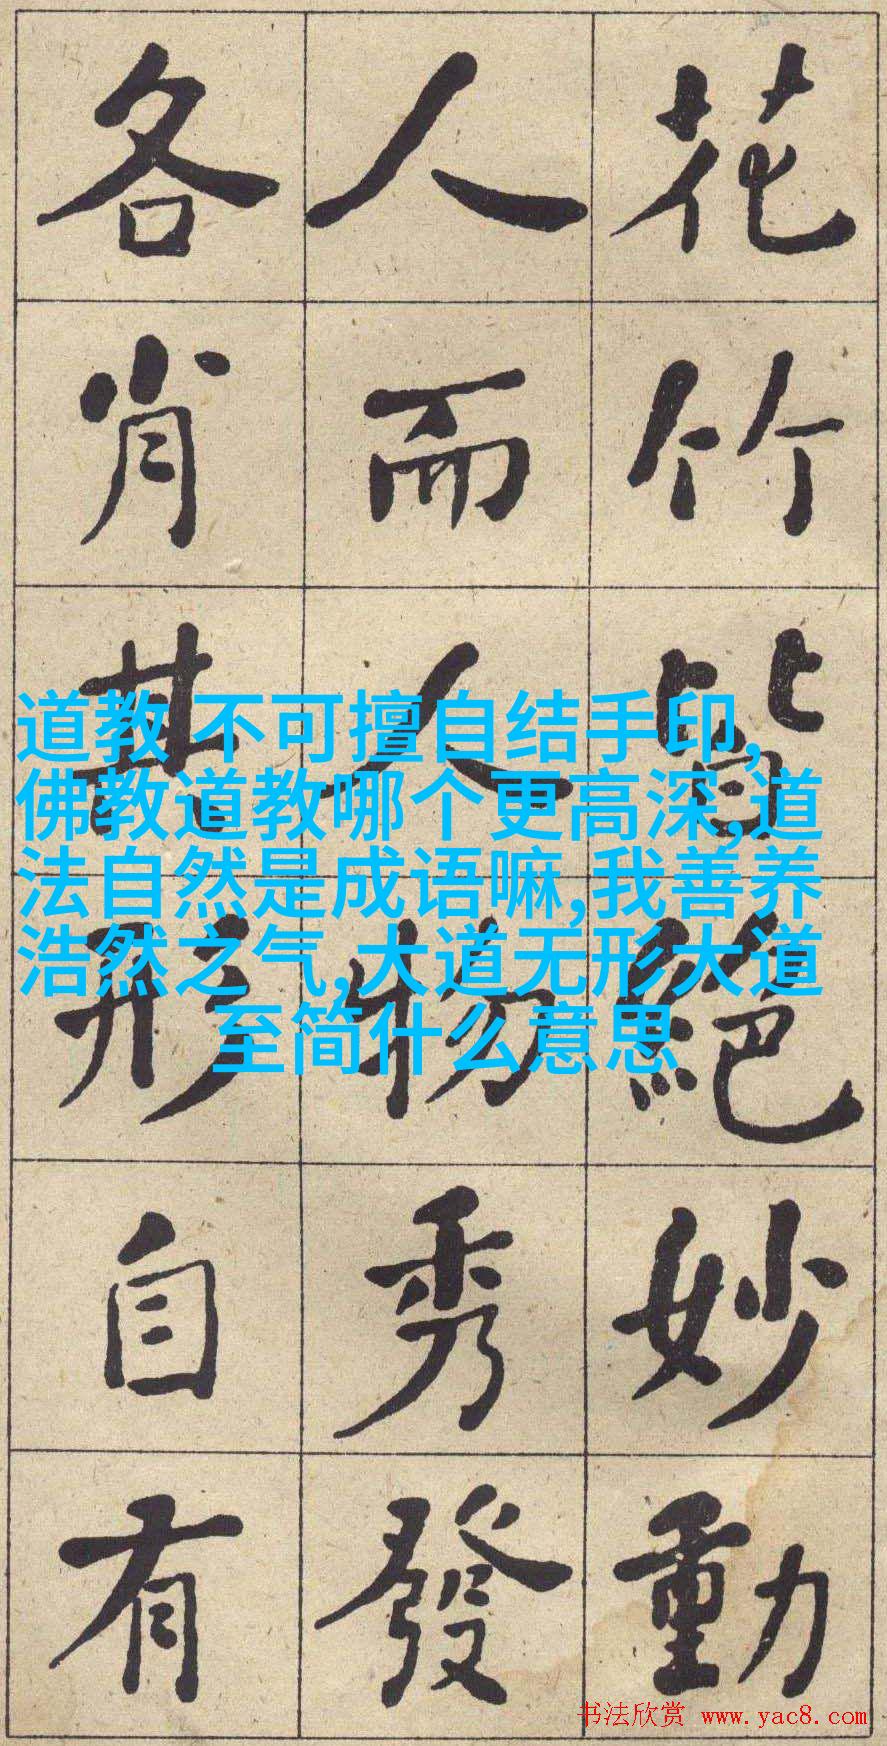 花竹皆絕妙動
人而人物秀發
各肖其形自有
道教 不可擅自结手印,
佛教道教哪个更高深,道
法自然是成语嘛,我善养
浩然之气,大道无形大道
至简什么意思
书法欣赏 www.yac8.com